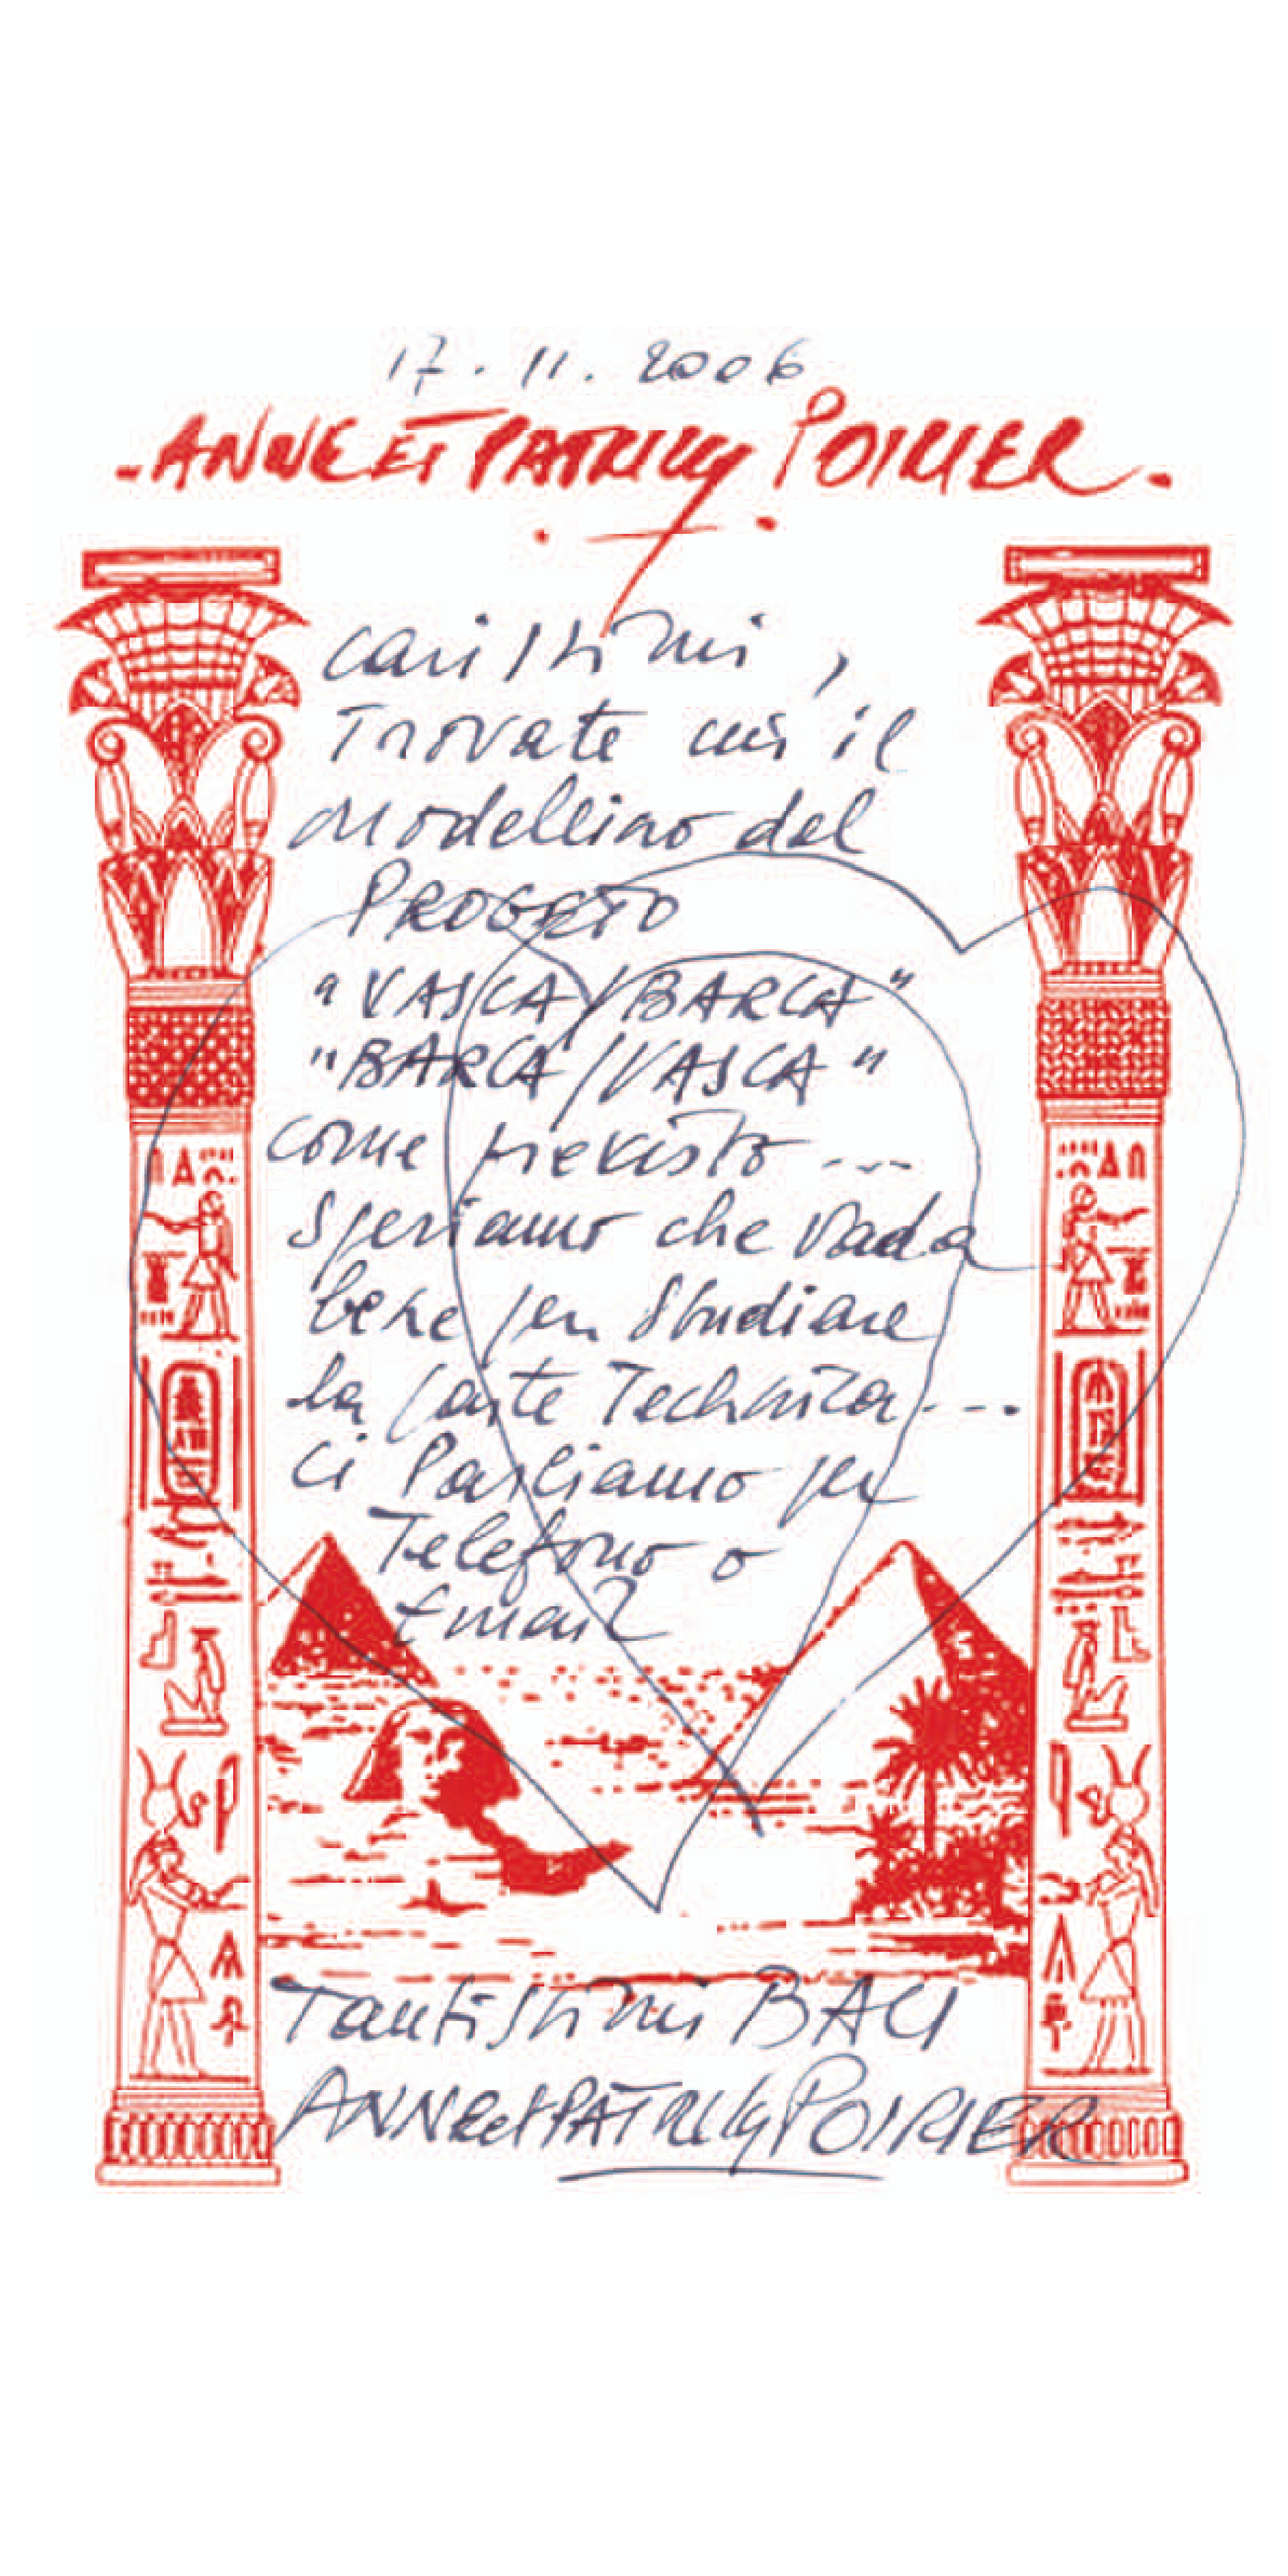 17.11.2006
-ANNE ET PATRICK POIRIER.
Carissimi,
Trovate qui il
Modellino del
PROGETTO
"VASCA/BARCA"
"BARCA/VASCA"
come previsto ...
Speriamo che vada
bene per studiare
la parte Technica ...
Ci Parliamo per
Telefono o
Email
Tantissimi BACI
ANNE et PATRICK POIRIER